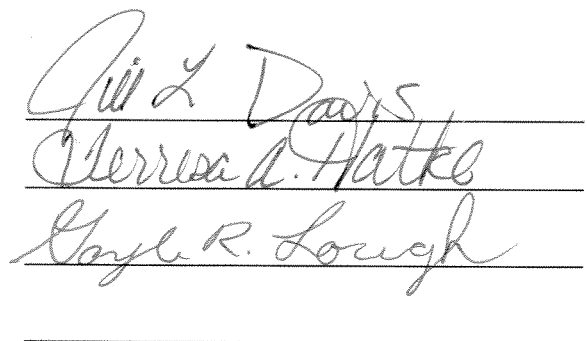 Jill L Davis
Terresa A. Hatke
Gayle R. Lough